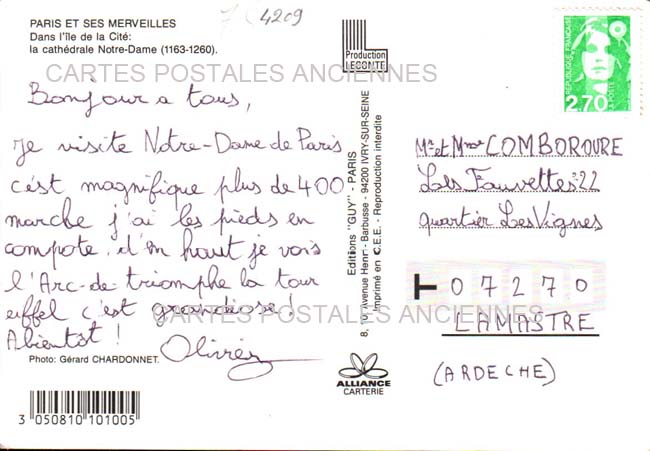 PARIS ET SES MERVEILLES
Dans l'île de la Cité:
la cathédrale Notre-Dame (1163-1260).
4209
CARTES POSTALES ANCIENNES
Bonjour a tous,
je visite Notre-Dame de Paris
c'est magnifique plus de 400
marche j'ai les pieds en
compote, d'en haut je vois
l'Arc-de triomphe la tour
eiffel c'est grandiose!
CARTES POSTALES ANCIENNES
Abientot!
Olivier
Photo: Gérard CHARDONNET.
3 050810 101005
Production
LECONTE
Editions "GUY" - PARIS
8, Avenue Henri - Barbusse - 94200 IVRY-SUR-SEINE
Imprimé en C.E.E. - Reproduction interdite
ALLIANCE
CARTERIE
REPUBLIQUE FRANÇAISE
LA POSTE
2,70
Mr et Mme COMBOROURE
Lots Fauvettes 22
quartier Les Vignes
07270
LAMASTRE
(ARDECHE)